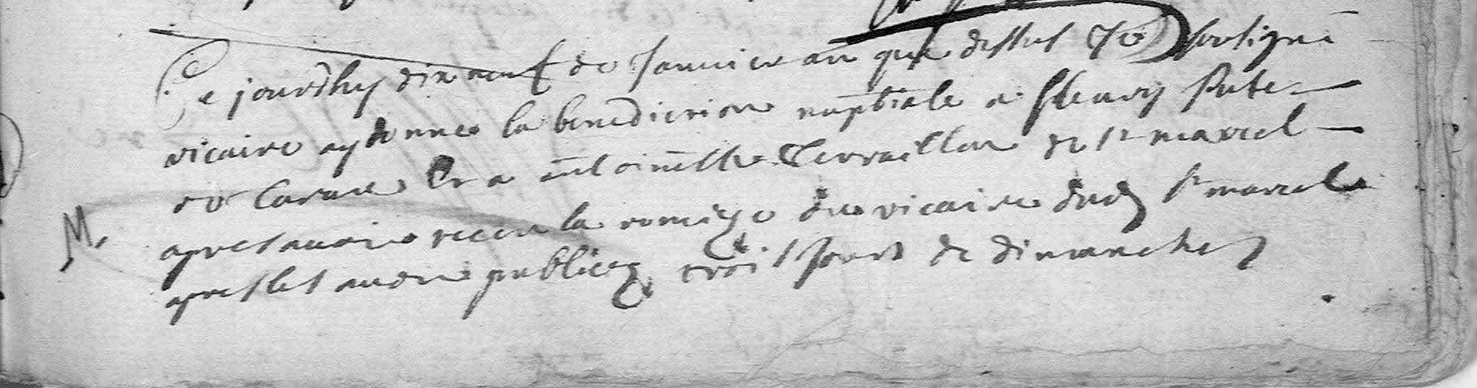 Ce jourdhuy dix neuf de Janvier an que dessus Je soubsigné
vicaire ay donné la benediction nuptiale a fleury Pute
de Tarare Et a anthoinette Terraillon de st marcel
apres avoir receu la remise du vicaire dud st marcel
M. apres les avoir publiez trois jours de dimanches